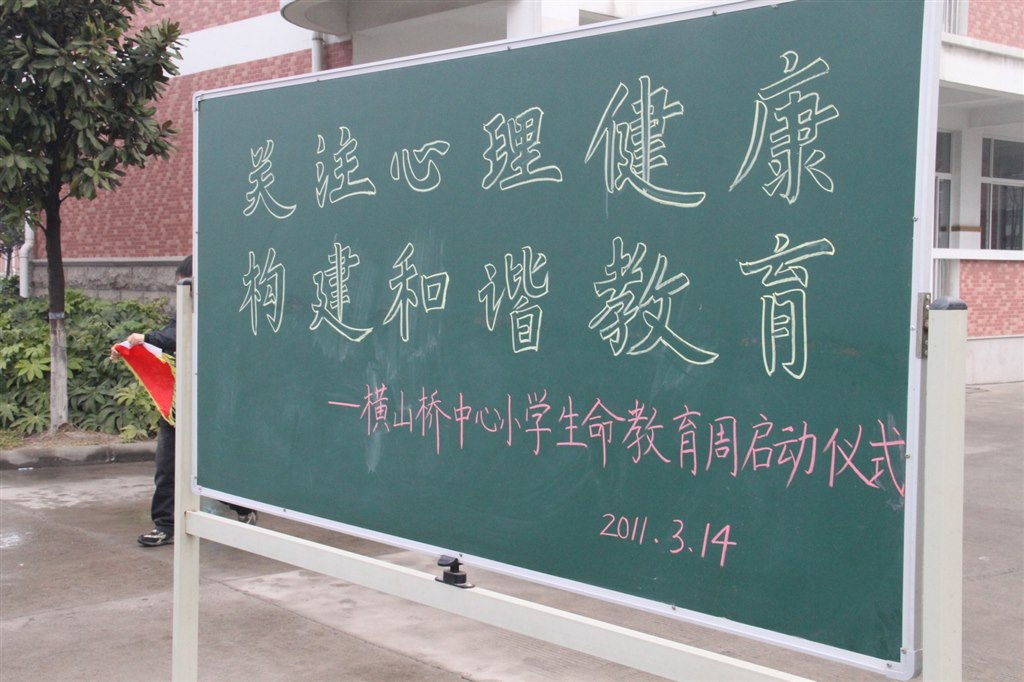 关注心理健康
构建和谐教育
—横山桥中心小学生命教育周启动仪式
2011.3.14